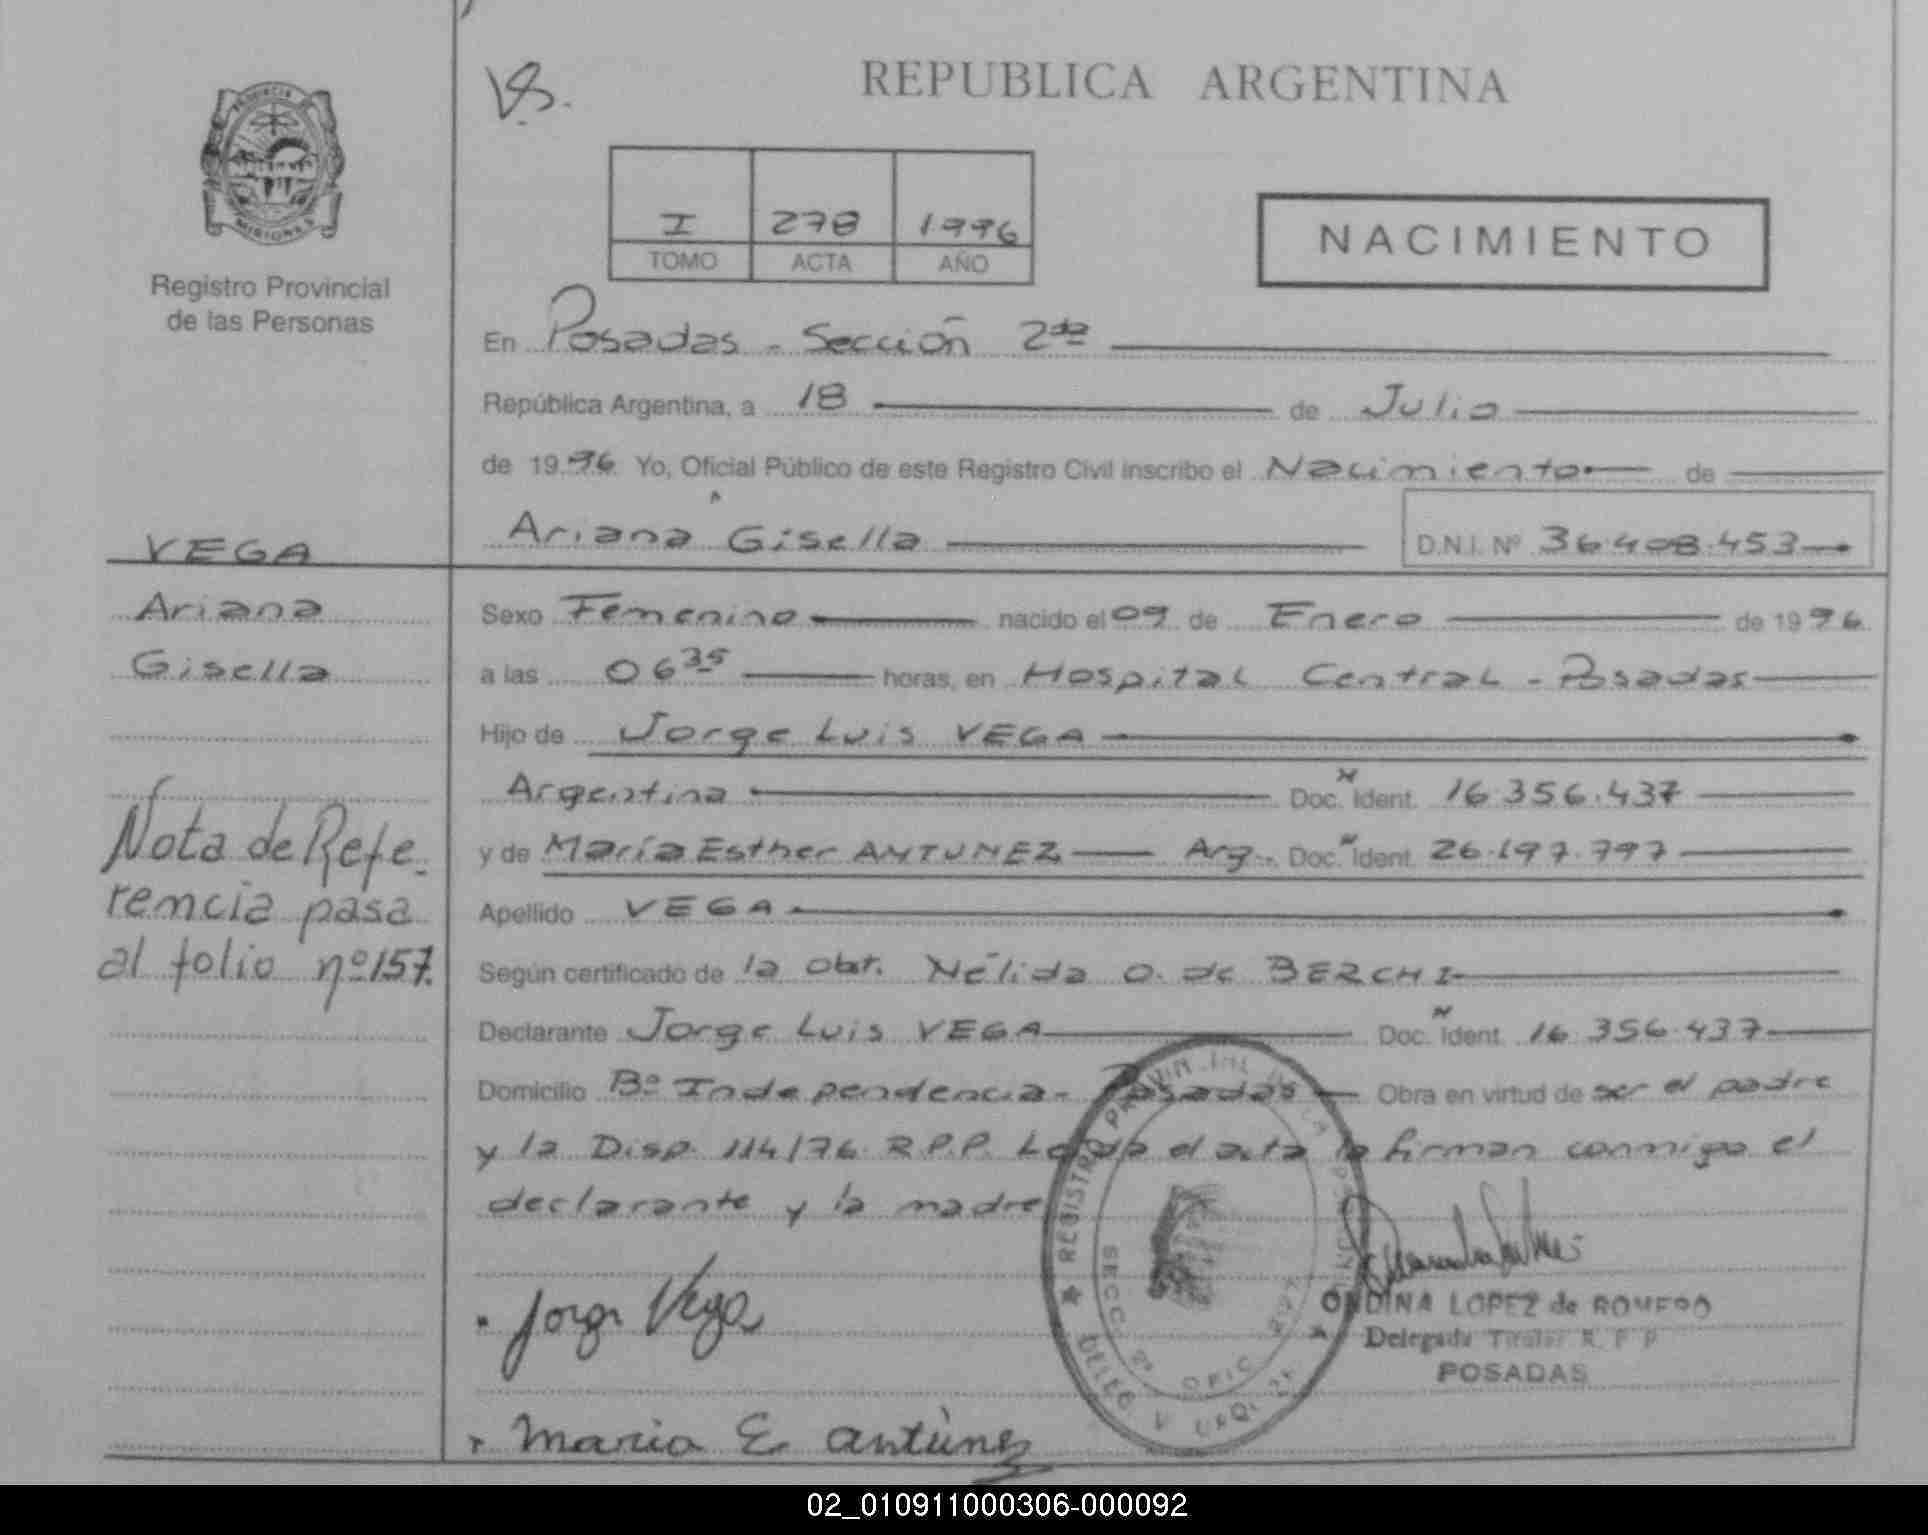 REPUBLICA ARGENTINA
PROVINCIA
MISIONES
Registro Provincial
de las Personas
I 278 1996
TOMO ACTA AÑO
NACIMIENTO
En Posadas - Sección 2da
República Argentina, a 18 de Julio
de 1996 Yo, Oficial Público de este Registro Civil inscribo el Nacimiento de
Ariana Gisella D.N.I. Nº 36.408.453
VEGA
Ariana
Gisella
Nota de Refe-
rencia pasa
al folio nº 157.
Sexo Femenino nacido el 09 de Enero de 1996
a las 06 35 horas, en Hospital Central - Posadas
Hijo de Jorge Luis VEGA
Argentina Doc. Ident. 16.356.437
y de María Esther ANTUNEZ Arg. Doc. Ident. 26.197.797
Apellido VEGA
Según certificado de la obst. Nélida O. de BERCHI
Declarante Jorge Luis VEGA Doc. Ident. 16.356.437
Domicilio Bº Independencia - Posadas Obra en virtud de ser el padre
y la Disp. 114/76 R.P.P. Leída el acta la firman conmigo el
declarante y la madre
Jorge Vega
Maria E. Antúnez
REGISTRO PROVINCIAL DE LAS PERSONAS
SECC 2ª
POSADAS
ONDINA LOPEZ de ROMERO
Delegada Titular R. P. P.
POSADAS
02_010911000306-000092